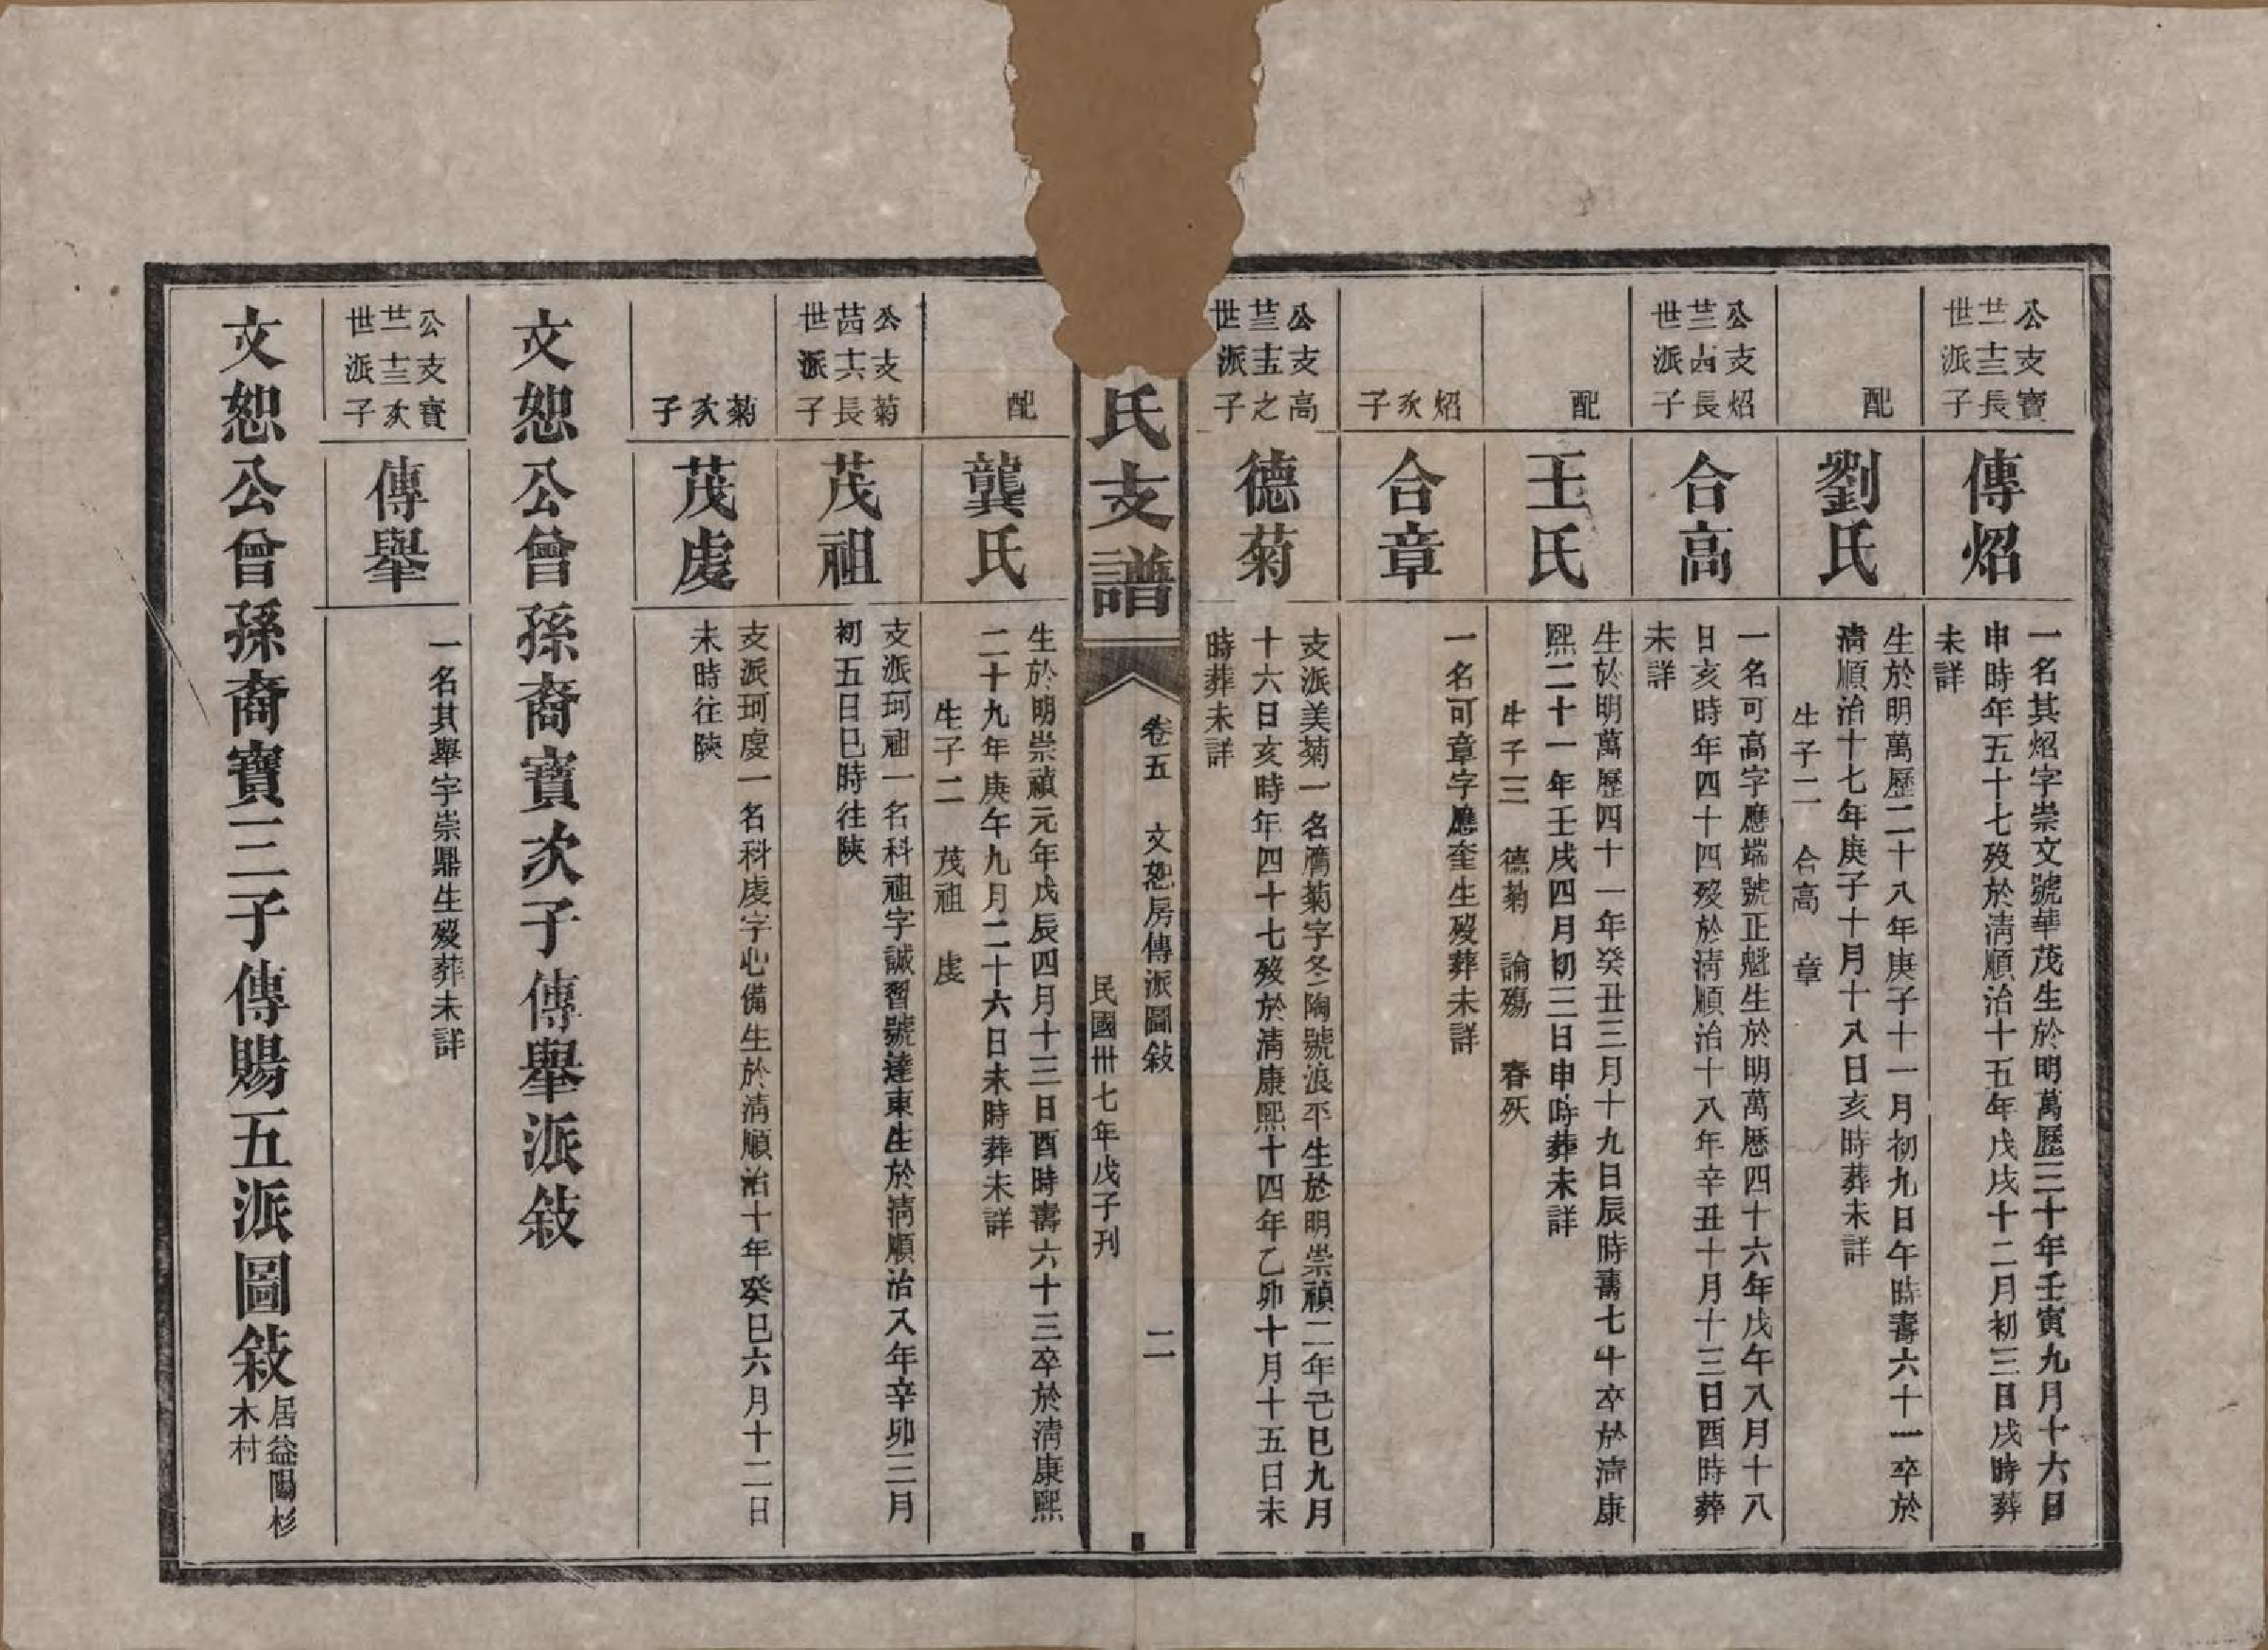 公支寶
世派子
傳炤
一名其炤字崇文號華茂生於明萬歷三十年壬寅九月十六日
申時年五十七歿於清順治十五年戊戌十二月初三日戌時葬
未詳
配
劉氏
生於明萬歷二十八年庚子十一月初九日午時壽六十一卒於
清順治十七年庚子十月十八日亥時葬未詳
生子二 合高 章
公支炤
世派子
合高
一名可高字應端號正魁生於明萬歷四十六年戊午八月十八
日亥時年四十四歿於清順治十八年辛丑十月十三日酉時葬
未詳
配
王氏
生於明萬歷四十一年癸丑三月十九日辰時壽七十卒於清康
熙二十一年壬戌四月初三日申時葬未詳
生子三 德菊 論殤 春殀
炤次子
合章
一名可章字應奎生歿葬未詳
公支高
世派子
德菊
支派美菊一名膺菊字冬陶號浪平生於明崇禎二年己巳九月
十六日亥時年四十七歿於清康熙十四年乙卯十月十五日未
時葬未詳
氏支譜
卷五 文恕房傳派圖敍 二
民國卅七年戊子刊
配
龔氏
生於明崇禎元年戊辰四月十三日酉時壽六十三卒於清康熙
二十九年庚午九月二十六日未時葬未詳
生子二 茂祖 虔
公支菊
世派子
茂祖
支派珂祖一名科祖字誠習號達東生於清順治八年辛卯三月
初五日巳時往陝
菊次子
茂虔
支派珂虔一名科虔字心備生於清順治十年癸巳六月十二日
未時往陝
文恕公曾孫裔寶次子傳舉派敍
公支寶
世派子
傳舉
一名其舉字崇鼎生歿葬未詳
文恕公曾孫裔寶三子傳賜五派圖敍
居益陽杉
木村